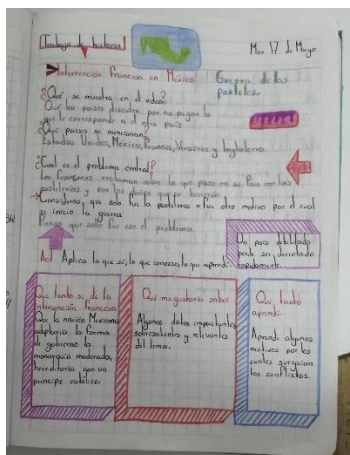 Trabajo de historia
Mar 17 de Mayo
Intervención Francesa en México
Guerra de los
pasteles.
¿Qué se muestra en el video?
Que los países discuten por no pagar lo
que le corresponde a el otro país
¿Qué países se mencionan?
Estados Unidos, Mexico, Francia, Veracruz y Inglaterra.
¿Cual es el problema central?
Los franceses reclaman sobre lo que pasa en su País con las
pastelerias y por los
Consideras, que solo fue la pastileria o fue otro motivo por el cual
se inicio la guerra
Pienso que solo fue ese el problema.
Un pais debilitado
puede ser derrotado
rapidamente.
Act Aplica lo que sé, lo que conozco, lo que aprendí.
Que tanto se de la
intervención francesa
Que la nación Mexicana
adoptaria la forma
de gobierno la
monarquia moderada,
hereditaria con un
principe catolico.
Que me gustaria saber
Algunos datos importantes,
sobresalientes y relevantes
del tema.
Que tanto
aprendi.
Aprendi algunos
motivos por los
cuales surguian
los conflictos.